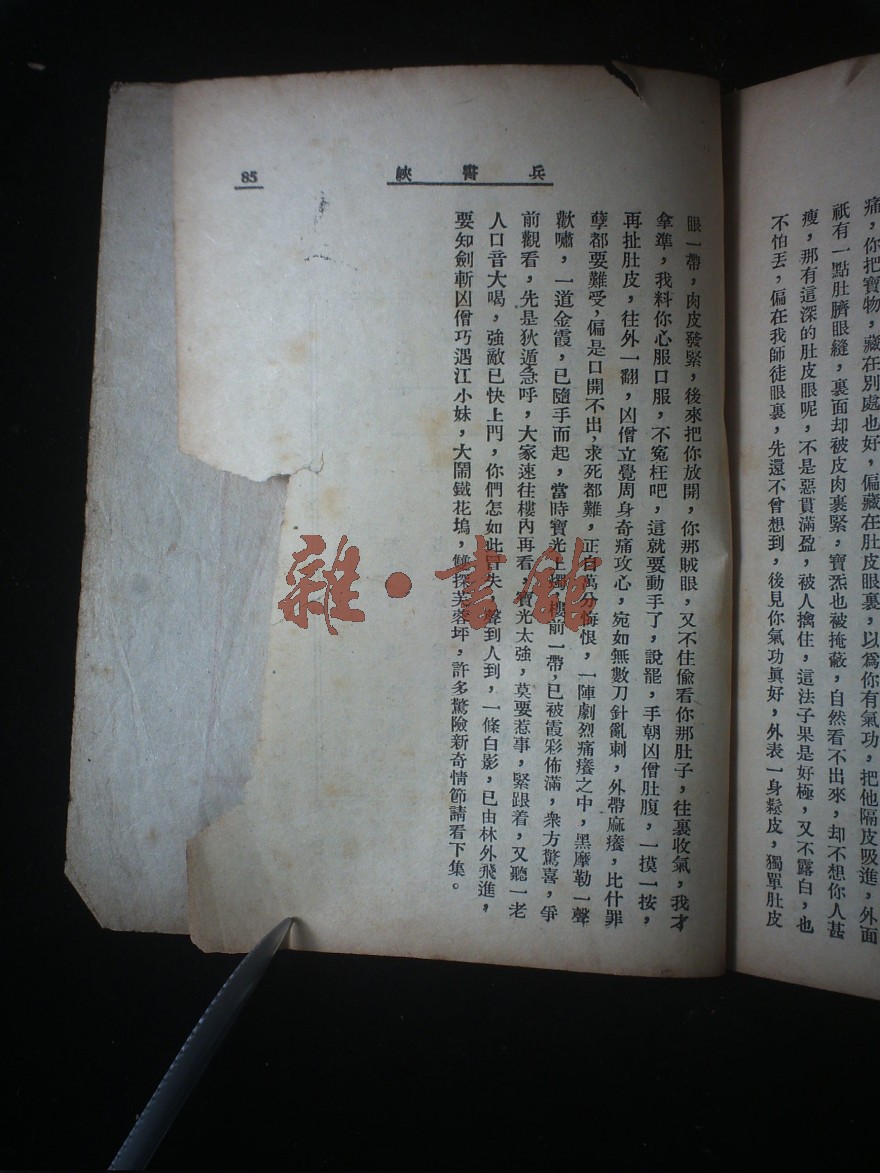 痛，你把寶物，藏在別處也好，偏藏在肚皮眼裏，以爲你有氣功，把他隔皮吸進，外面
祇有一點肚臍眼縫，裏面却被皮肉裹緊，寶炁也被掩蔽，自然看不出來，却不想你人甚
瘦，那有這深的肚皮眼呢，不是惡貫滿盈，被人擒住，這法子果是好極，又不露白，也
不怕丟，偏在我師徒眼裏，先還不曾想到，後見你氣功眞好，外表一身鬆皮，獨單肚皮
兵書峽
85
眼一帶，肉皮發緊，後來把你放開，你那賊眼，又不住偷看你那肚子，往裏收氣，我才
拿準，我料你心服口服，不寃枉吧，這就要動手了，說罷，手朝凶僧肚腹，一摸一按，
再扯肚皮，往外一翻，凶僧立覺周身奇痛攻心，宛如無數刀針亂刺，外帶麻癢，比什罪
孽都要難受，偏是口開不出，求死都難，正自萬分悔恨，一陣劇烈痛癢之中，黑摩勒一聲
歡嘯，一道金霞，已隨手而起，當時寶光上燭，樓前一帶，已被霞彩佈滿，衆方驚喜，爭
前觀看，先是狄遁急呼，大家速往樓內再看，寶光太強，莫要惹事，緊跟着，又聽一老
人口音大喝，強敵已快上門，你們怎如此冒失，聲到人到，一條白影，已由林外飛進，
要知劍斬凶僧巧遇江小妹，大鬧鐵花塢，雙探芙蓉坪，許多驚險新奇情節請看下集。
雜·書館